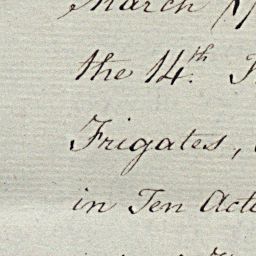 March
the 14th.
Frigates,
in Ten